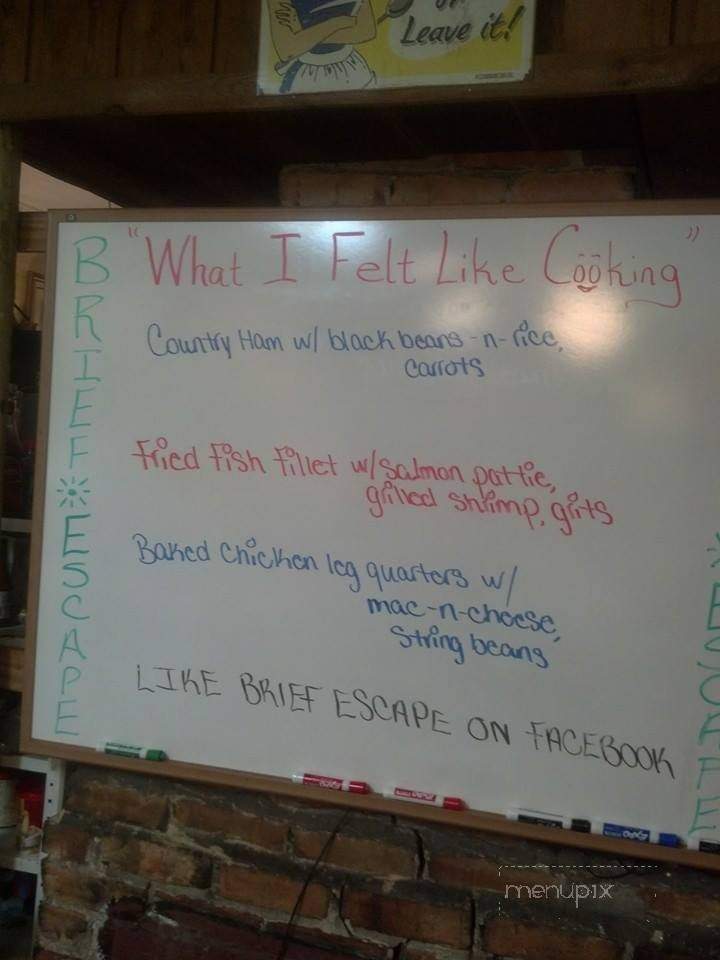 Leave it!
"What I Felt Like Cooking"
BRIEF ESCAPE
Country Ham w/ black beans-n-rice,
carrots
Fried Fish Fillet w/ salmon pattie,
grilled shrimp, grits
Baked chicken leg quarters w/
mac-n-cheese,
string beans
LIKE BRIEF ESCAPE ON FACEBOOK
ESCAPE
menupix